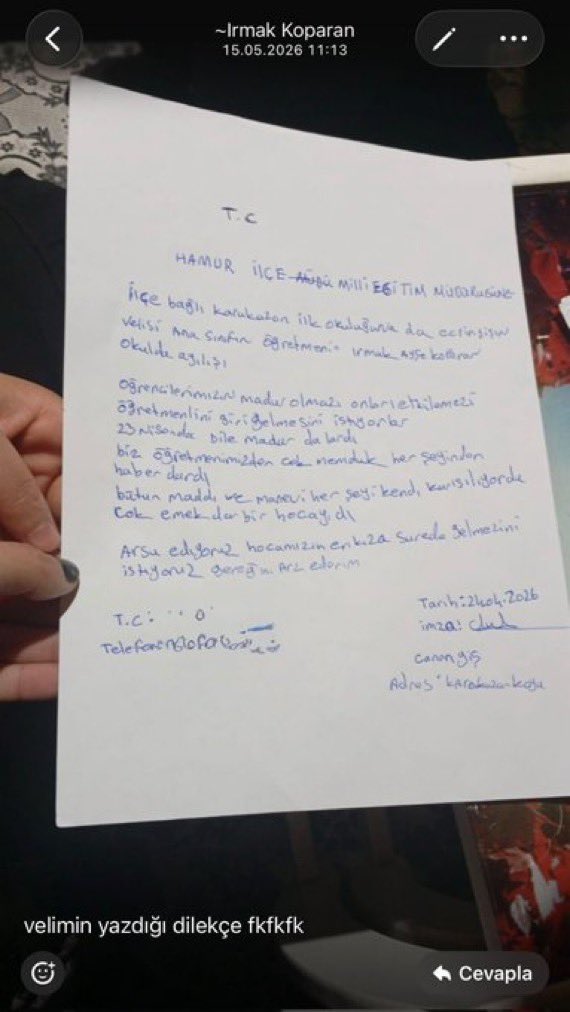 ~Irmak Koparan
15.05.2026 11:13
T.C
HAMUR İLÇE MİLLİ EĞİTİM MÜDÜRLÜĞÜNE
İlçe bağlı ilk okuluğuna da
velisi Ana sınıfın öğretmeni Irmak Ayşe koparan
okulda açılışı
öğrencilerimizin madur olmazı
öğretmenlini giri gelmesini istiyorlar
23 Nisanda bile madur da lardı
biz öğretmenimizden çok memduk her şeyinden
haber dardı
bütun maddi ve manevi her şeyi kendi karışılıyorde
çok emekdar bir hocaydı
Arsu ediyoruz hocamızın enkıza surede gelmezini
istiyoruz gereğin Arz ederim
T.C:
Tarih:
imza:
Adres:
velimin yazdığı dilekçe fkfkfk
Cevapla